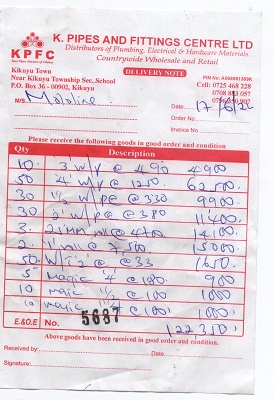 KPFC
K. PIPES AND FITTINGS CENTRE LTD
Distributors of Plumbing, Electrical & Hardware Materials.
Countrywide Wholesale and Retail
Kikuyu Town
Near Kikuyu Township Sec. School
P.O. Box 36 - 00902, Kikuyu
DELIVERY NOTE
Cell: 0725 468 228
M/S.
Date 17/6/22
Order No.
Invoice No.
Please receive the following goods in good order and condition
Qty Description
10 3" w/p @ 490 4900
50 4" w/p @ 1250 62500
30 @ 330 9900
30 2" w/p @ 380 11400
3 @ 4700 14100
2 @ 7500 15000
50 @ 33 1650
5 magic @ 180 900
10 magic @ 100 1000
10 magic @ 100 1000
E.&O.E No. 5687 122350
Above goods have been received in good order and condition.
Received by:
Date:
Signature: